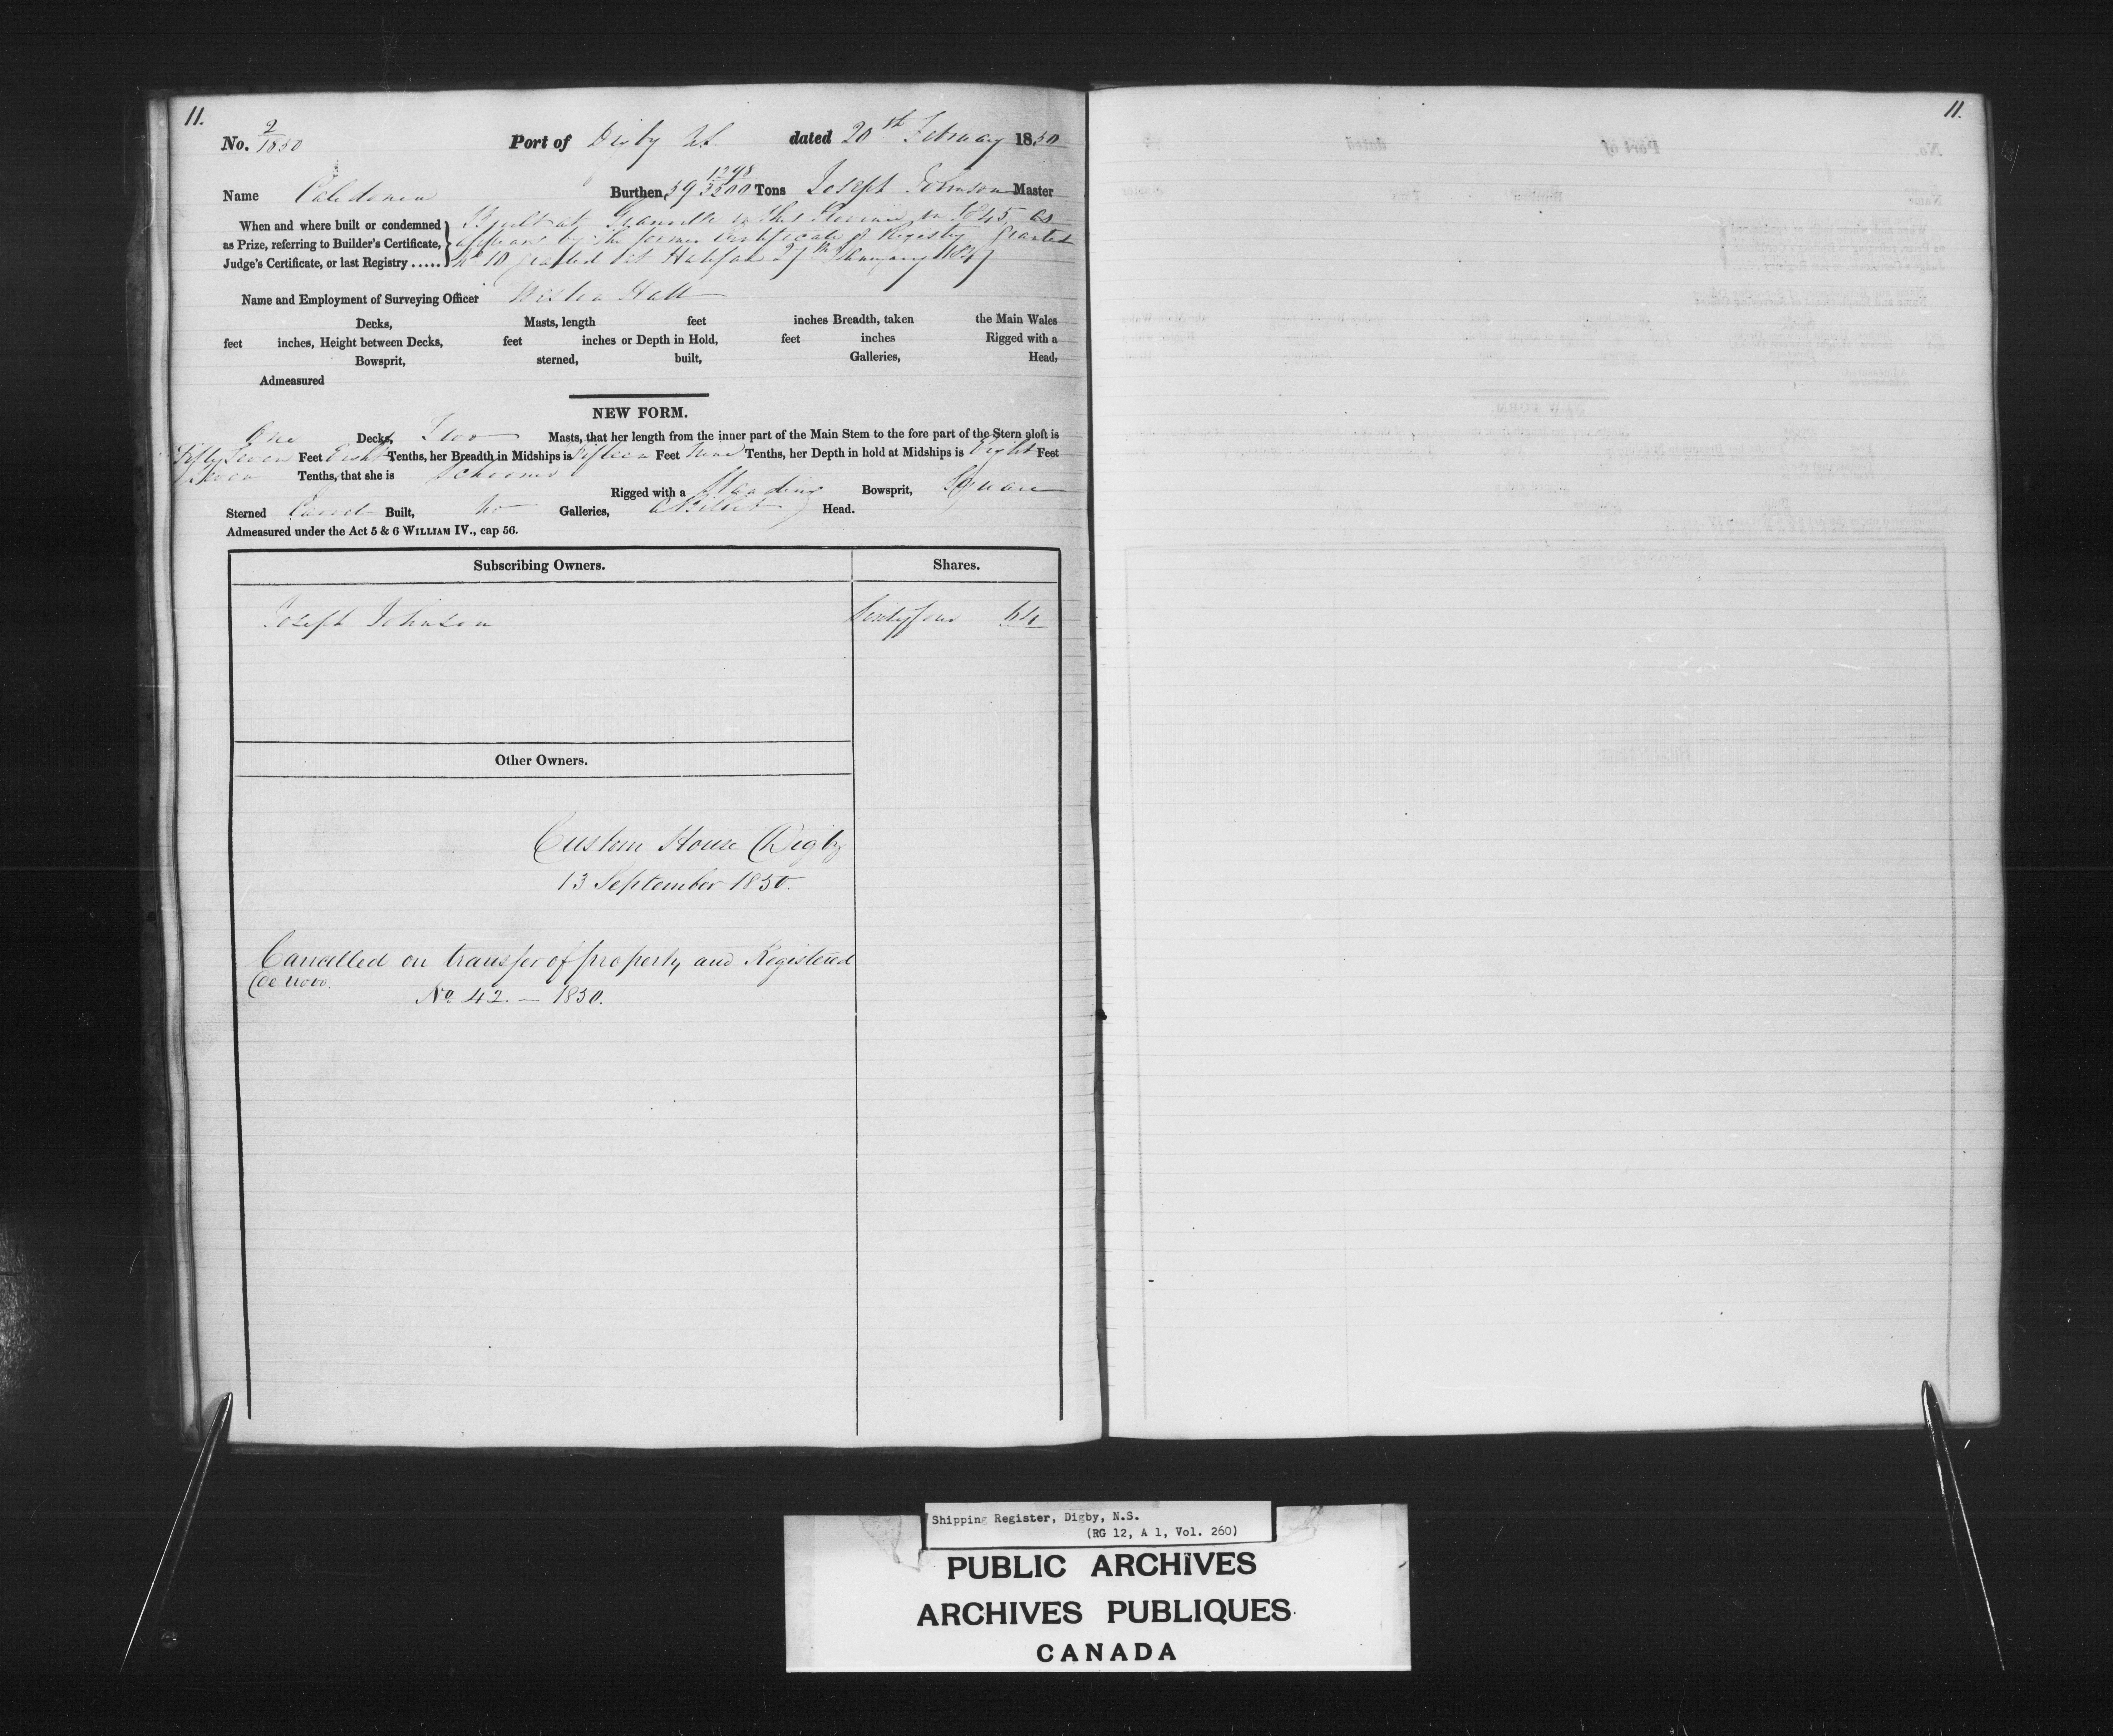 11.
No. 2/1850 Port of Digby NS. dated 20th February 1850
Name Caledonia Burthen, 59 1298/3500 Tons Joseph Johnson Master
When and where built or condemned as Prize, referring to Builder's Certificate, Judge's Certificate, or last Registry .....
Built at Granville in this Province in 1845 as
appears by the former Certificate of Registry granted
No 10 granted at Halifax 27th January 1847
Name and Employment of Surveying Officer Hall
Decks, Masts, length feet inches Breadth, taken the Main Wales
feet inches, Height between Decks, feet inches or Depth in Hold, feet inches Rigged with a
Bowsprit, sterned, built, Galleries, Head,
Admeasured
NEW FORM.
One Decks, Two Masts, that her length from the inner part of the Main Stem to the fore part of the Stern aloft is
Fifty Seven Feet Eight Tenths, her Breadth in Midships is Fifteen Feet Nine Tenths, her Depth in hold at Midships is Eight Feet
Tenths, that she is Schooner
Rigged with a Standing Bowsprit, Square
Sterned Carvel Built, no Galleries, a Billet Head.
Admeasured under the Act 5 & 6 WILLIAM IV., cap 56.
Subscribing Owners. Shares.
Joseph Johnson Sixty four 64
Other Owners.
Custom House Digby
13 September 1850.
Cancelled on transfer of property and Registered
de novo.
No. 42. — 1850.
11.
Shipping Register, Digby, N.S.
(RG 12, A 1, Vol. 260)
PUBLIC ARCHIVES
ARCHIVES PUBLIQUES
CANADA